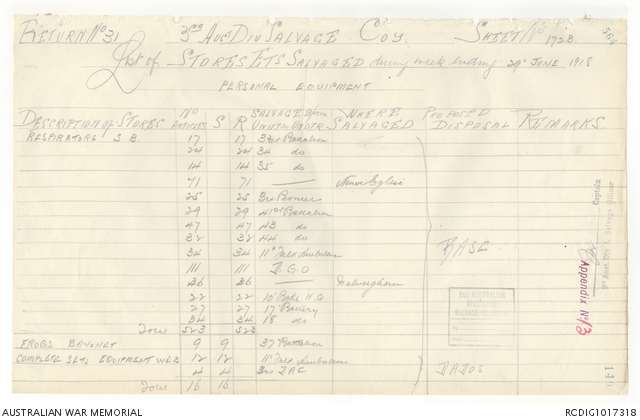 RETURN No 31 3RD AUS DIV SALVAGE COY. SHEET No 1728
List of STORES ETS SALVAGED during week ending 29th JUNE 1918
PERSONAL EQUIPMENT
DESCRIPTION OF STORES No S R SALVAGE from WHERE SALVAGED PROPOSED DISPOSAL REMARKS
RESPIRATORS S.B. 17 17 33rd Battalion
24 24 34 do
14 14 35 do
71 71 —
25 25 3rd Pioneer
29 29 41st Battalion
47 47 43 do
32 32 44 do
34 34 11th Field Ambulance
BASE
111 111
36 36 —
22 22 10 Bgde H.Q
27 27 17 Battery
34 34 18 do
Total 523 523
FROGS BAYONET 9 9 37 Battalion
COMPLETE SETS EQUIPMENT WEB 12 12 11th Field Ambulance
4 4 3rd DAC
DADOS
Total 16 16
Captain
Salvage Officer
Appendix No 13
AUSTRALIAN WAR MEMORIAL RCDIG1017318